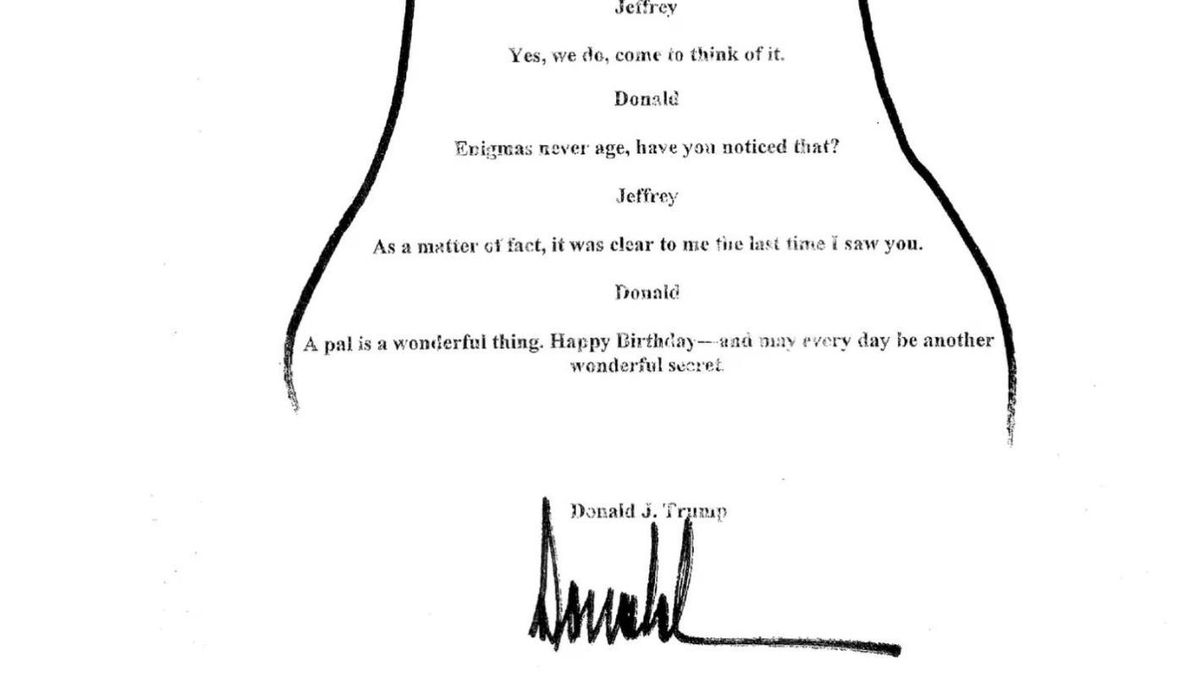 Jeffrey
Yes, we do, come to think of it.
Donald
Enigmas never age, have you noticed that?
Jeffrey
As a matter of fact, it was clear to me the last time I saw you.
Donald
A pal is a wonderful thing. Happy Birthday—and may every day be another
wonderful secret.
Donald J. Trump
Donald